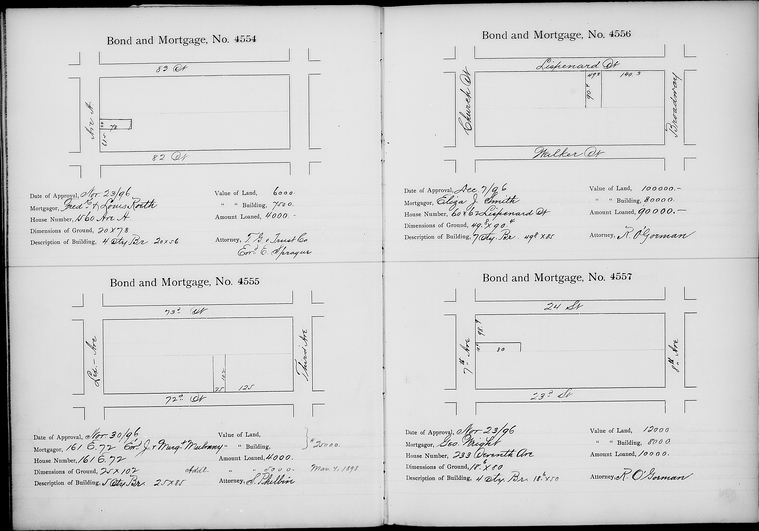 Bond and Mortgage, No. 4554
82 St
Ave A
78
82 St
Date of Approval, Nov 23/96
Value of Land, 6000
Mortgagor, Fredk & Louis Roth
" " Building, 7500
House Number, 1560 Ave A
Amount Loaned, 4000.—
Dimensions of Ground, 20 x 78
Description of Building, 4 Sty Br 20x56
Attorney, T. G. & Trust Co
E. Sprague
Bond and Mortgage, No. 4555
73d St
Lex— Ave
Third Ave
102
25 125
72d St
Date of Approval, Nov 30/96
Value of Land,
Mortgagor, 161 E. 72 Ed. J. & Marg't Mulroney
" " Building,
$25000.
House Number, 161 E. 72
Amount Loaned, 4000.
Dimensions of Ground, 25 x 102
Addl. " " 5000. Mar 4. 1898
Description of Building, 5 Sty Br. 25x85
Attorney, S. Philbin
Bond and Mortgage, No. 4556
Lispenard St
Church St
49.2 140.3
90.4
Broadway
Walker St
Date of Approval, Dec 7/96
Value of Land, 100000.—
Mortgagor, Eliza J. Smith
" " Building, 80000.
House Number, 60 & 62 Lispenard St
Amount Loaned, 90000.—
Dimensions of Ground, 49.2 x 90.4
Description of Building, 7 Sty. Br. 49.2 x 85
Attorney, R. O'Gorman
Bond and Mortgage, No. 4557
24 St
7th Ave
98.9
80
8th Ave
23d St
Date of Approval, Nov 23/96
Value of Land, 12000
Mortgagor, Geo. Wright
" " Building, 8000.
House Number, 233 Seventh Ave
Amount Loaned, 10000.
Dimensions of Ground, 18.6 x 80
Description of Building, 4 Sty. Br. 18.6 x 50
Attorney, R. O'Gorman